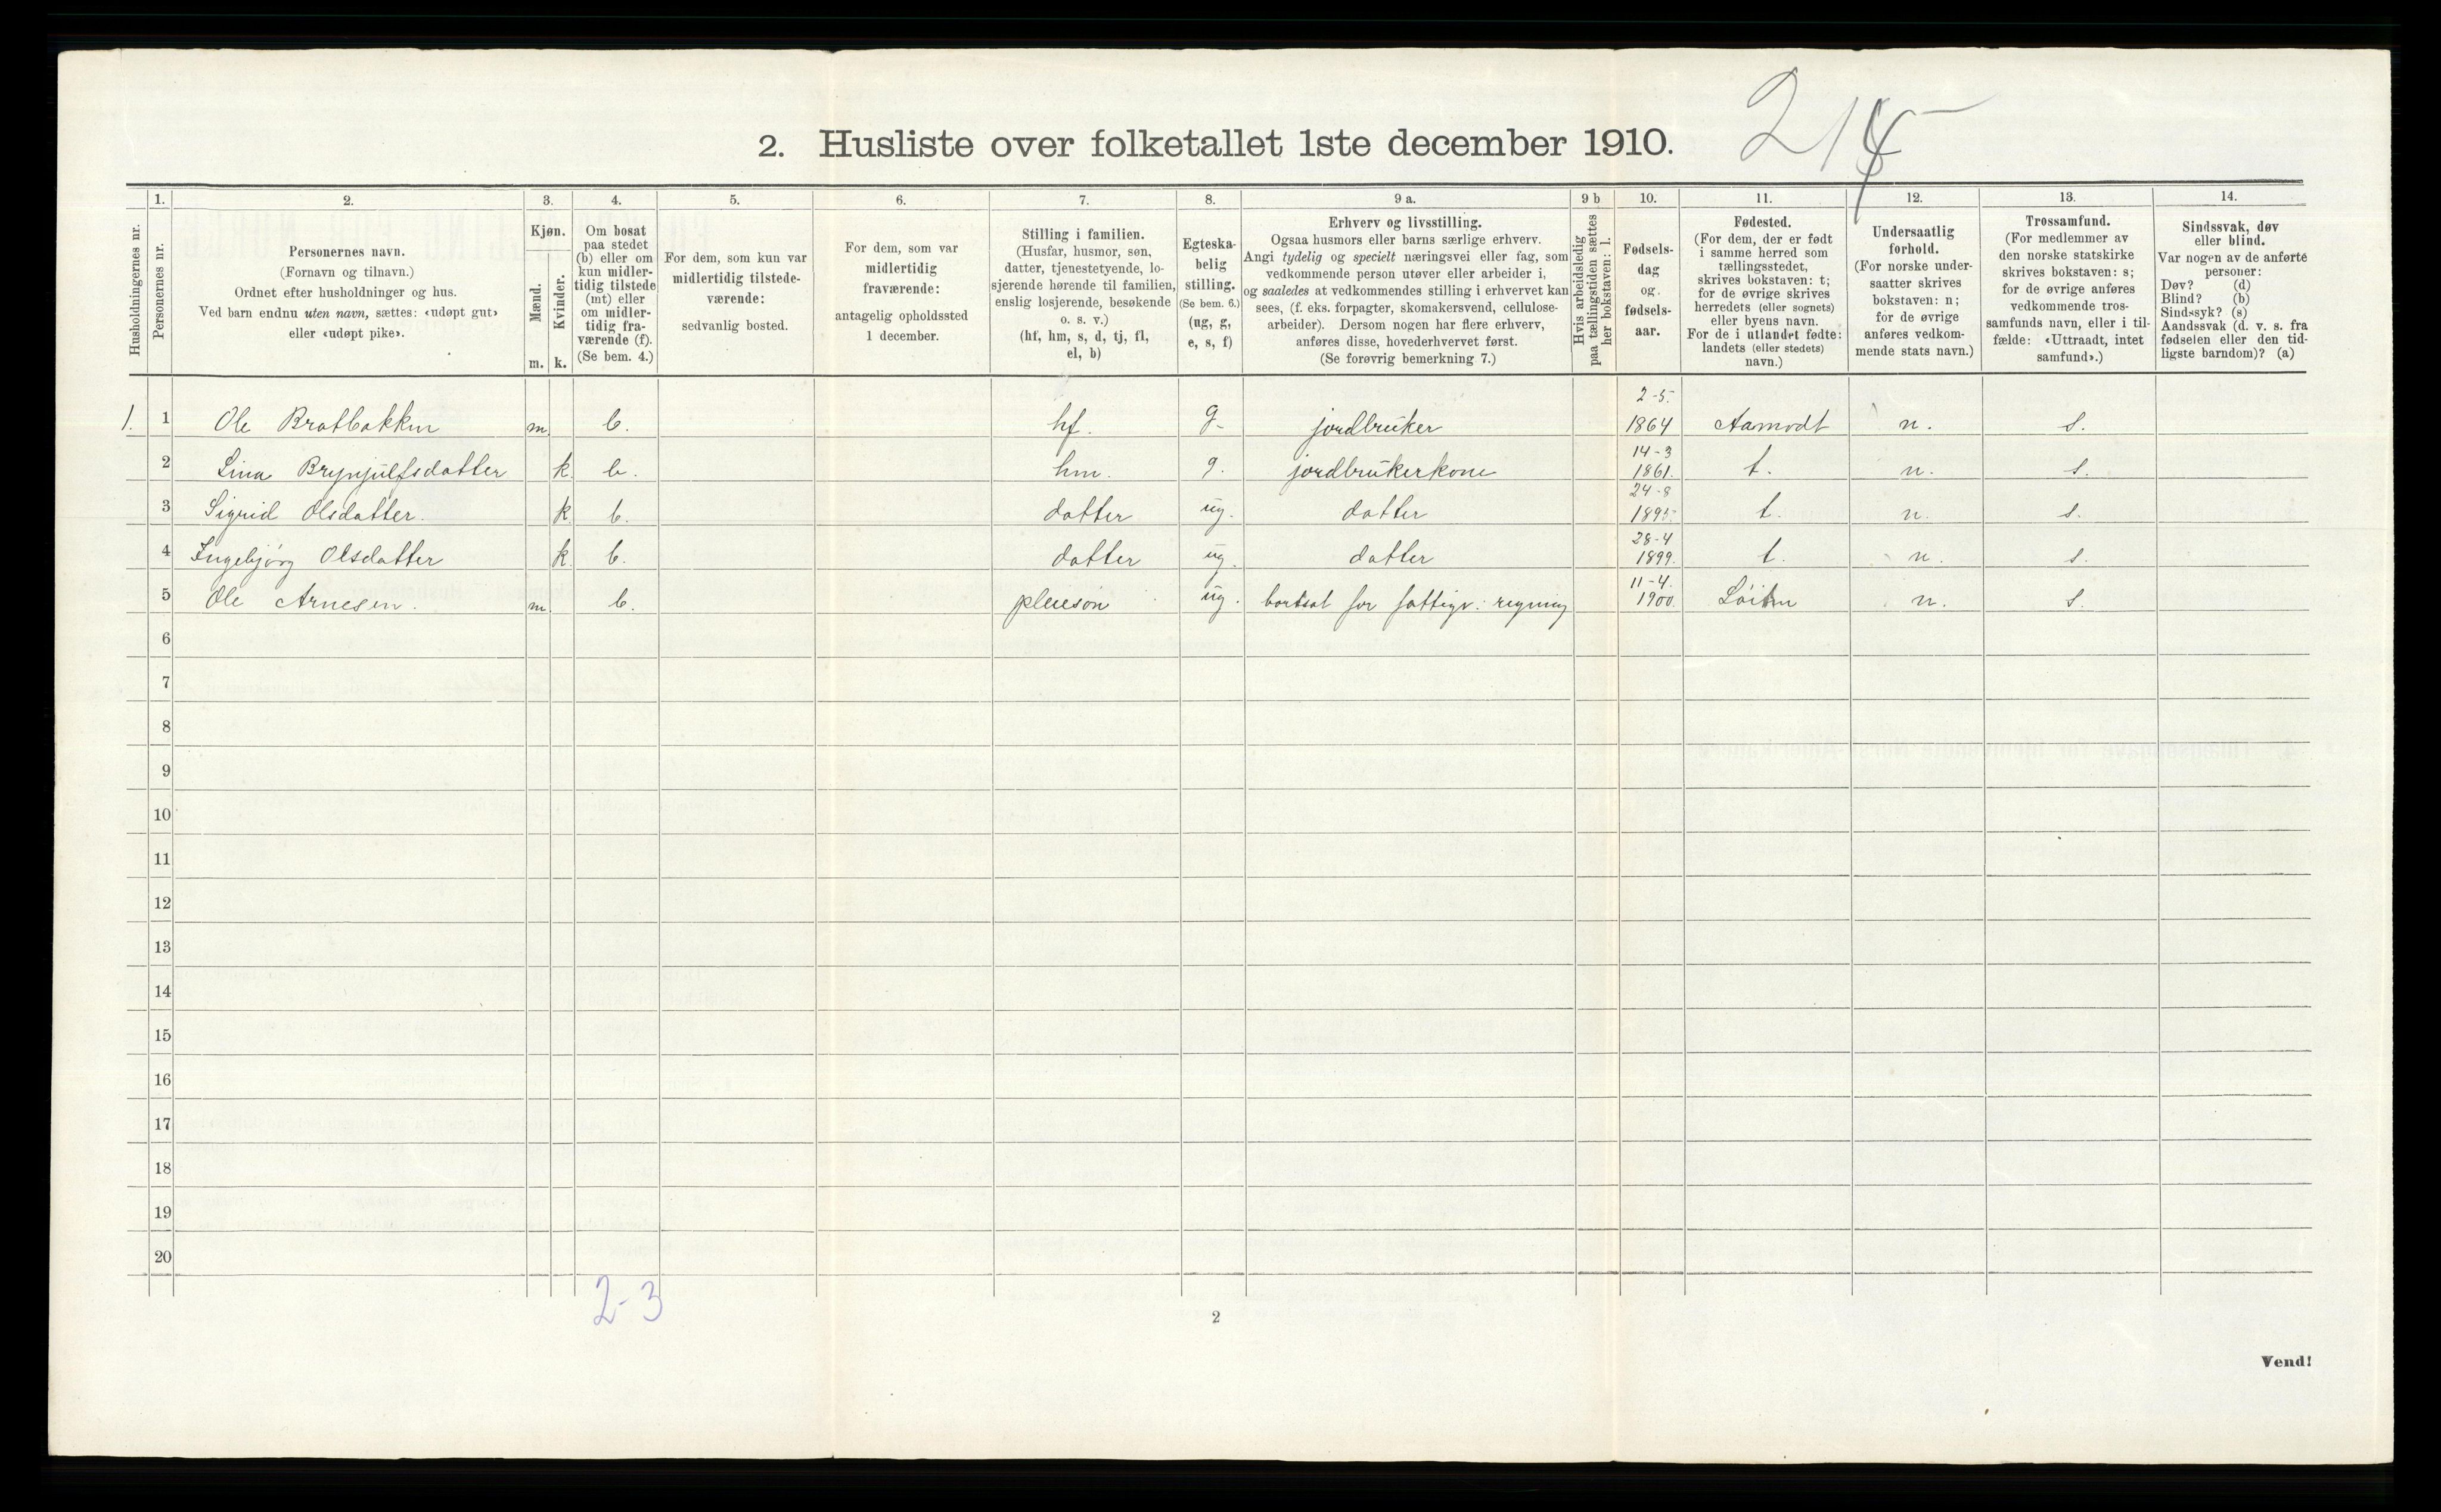 2. Husliste over folketallet 1ste december 1910.
214
Husholdningernes nr.
1.
Personernes nr.
2.
Personernes navn.
(Fornavn og tilnavn.)
Ordnet efter husholdninger og hus.
Ved barn endnu uten navn, sættes: «udøpt gut»
eller «udøpt pike».
3.
Kjøn.
Mænd.
Kvinder.
m. k.
4.
Om bosat
paa stedet
(b) eller om
kun midler-
tidig tilstede
(mt) eller
om midler-
tidig fra-
værende (f).
(Se bem. 4.)
5.
For dem, som kun var
midlertidig tilstede-
værende:
sedvanlig bosted.
6.
For dem, som var
midlertidig
fraværende:
antagelig opholdssted
1 december.
7.
Stilling i familien.
(Husfar, husmor, søn,
datter, tjenestetyende, lo-
sjerende hørende til familien,
enslig losjerende, besøkende
o. s. v.)
(hf, hm, s, d, tj, fl,
el, b)
8.
Egteska-
belig
stilling.
(Se bem. 6.)
(ug, g,
e, s, f)
9 a.
Erhverv og livsstilling.
Ogsaa husmors eller barns særlige erhverv.
Angi tydelig og specielt næringsvei eller fag, som
vedkommende person utøver eller arbeider i,
og saaledes at vedkommendes stilling i erhvervet kan
sees, (f. eks. forpagter, skomakersvend, cellulose-
arbeider). Dersom nogen har flere erhverv,
anføres disse, hovederhvervet først.
(Se forøvrig bemerkning 7.)
9 b
Hvis arbeidsledig
paa tællingstiden sættes
her bokstaven: l.
10.
Fødsels-
dag
og
fødsels-
aar.
11.
Fødested.
(For dem, der er født
i samme herred som
tællingsstedet,
skrives bokstaven: t;
for de øvrige skrives
herredets (eller sognets)
eller byens navn.
For de i utlandet fødte:
landets (eller stedets)
navn.)
12.
Undersaatlig
forhold.
(For norske under-
saatter skrives
bokstaven: n;
for de øvrige
anføres vedkom-
mende stats navn.)
13.
Trossamfund.
(For medlemmer av
den norske statskirke
skrives bokstaven: s;
for de øvrige anføres
vedkommende tros-
samfunds navn, eller i til-
fælde: «Uttraadt, intet
samfund».)
14.
Sindssvak, døv
eller blind.
Var nogen av de anførte
personer:
Døv? (d)
Blind? (b)
Sindssyk? (s)
Aandssvak (d. v. s. fra
fødselen eller den tid-
ligste barndom)? (a)
1. 1 Ole Bratbakken m b. hf. g. jordbruker 2-5. 1864 Aamodt n. s.
2 Lina Brynjulfsdatter k b. hm. g. jordbrukerkone 14-3 1861. t. n. s.
3 Sigrid Olsdatter. k b. datter ug. datter 24-8 1895 t. n. s.
4 Ingebjörg Olsdatter k b. datter ug. datter 28-4 1899. t. n. s.
5 Ole Arnesen. m b. pleiesön ug. bortsat for fattigv. regning 11-4. 1900. Löiten n. s.
6
7
8
9
10
11
12
13
14
15
16
17
18
19
20
2-3
2
Vend!